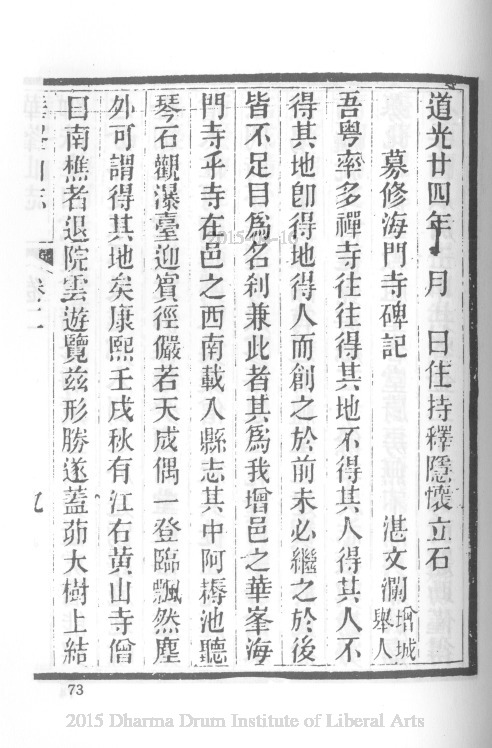 道光廿四年 月 日住持釋隱懷立石
募修海門寺碑記 湛文瀾增城舉人
吾粤率多禪寺往往得其地不得其人得其人不
得其地卽得地得人而創之於前未必繼之於後
皆不足目為名刹兼此者其為我增邑之華峯海
門寺乎寺在邑之西南載入縣志其中阿耨池聽
琴石觀瀑臺迎賓徑儼若天成偶一登臨飄然塵
外可謂得其地矣康熙壬戌秋有江右黃山寺僧
曰南樵者退院雲遊覽兹形勝遂蓋茆大樹上結
志 卷二 九
73
2015 Dharma Drum Institute of Liberal Arts